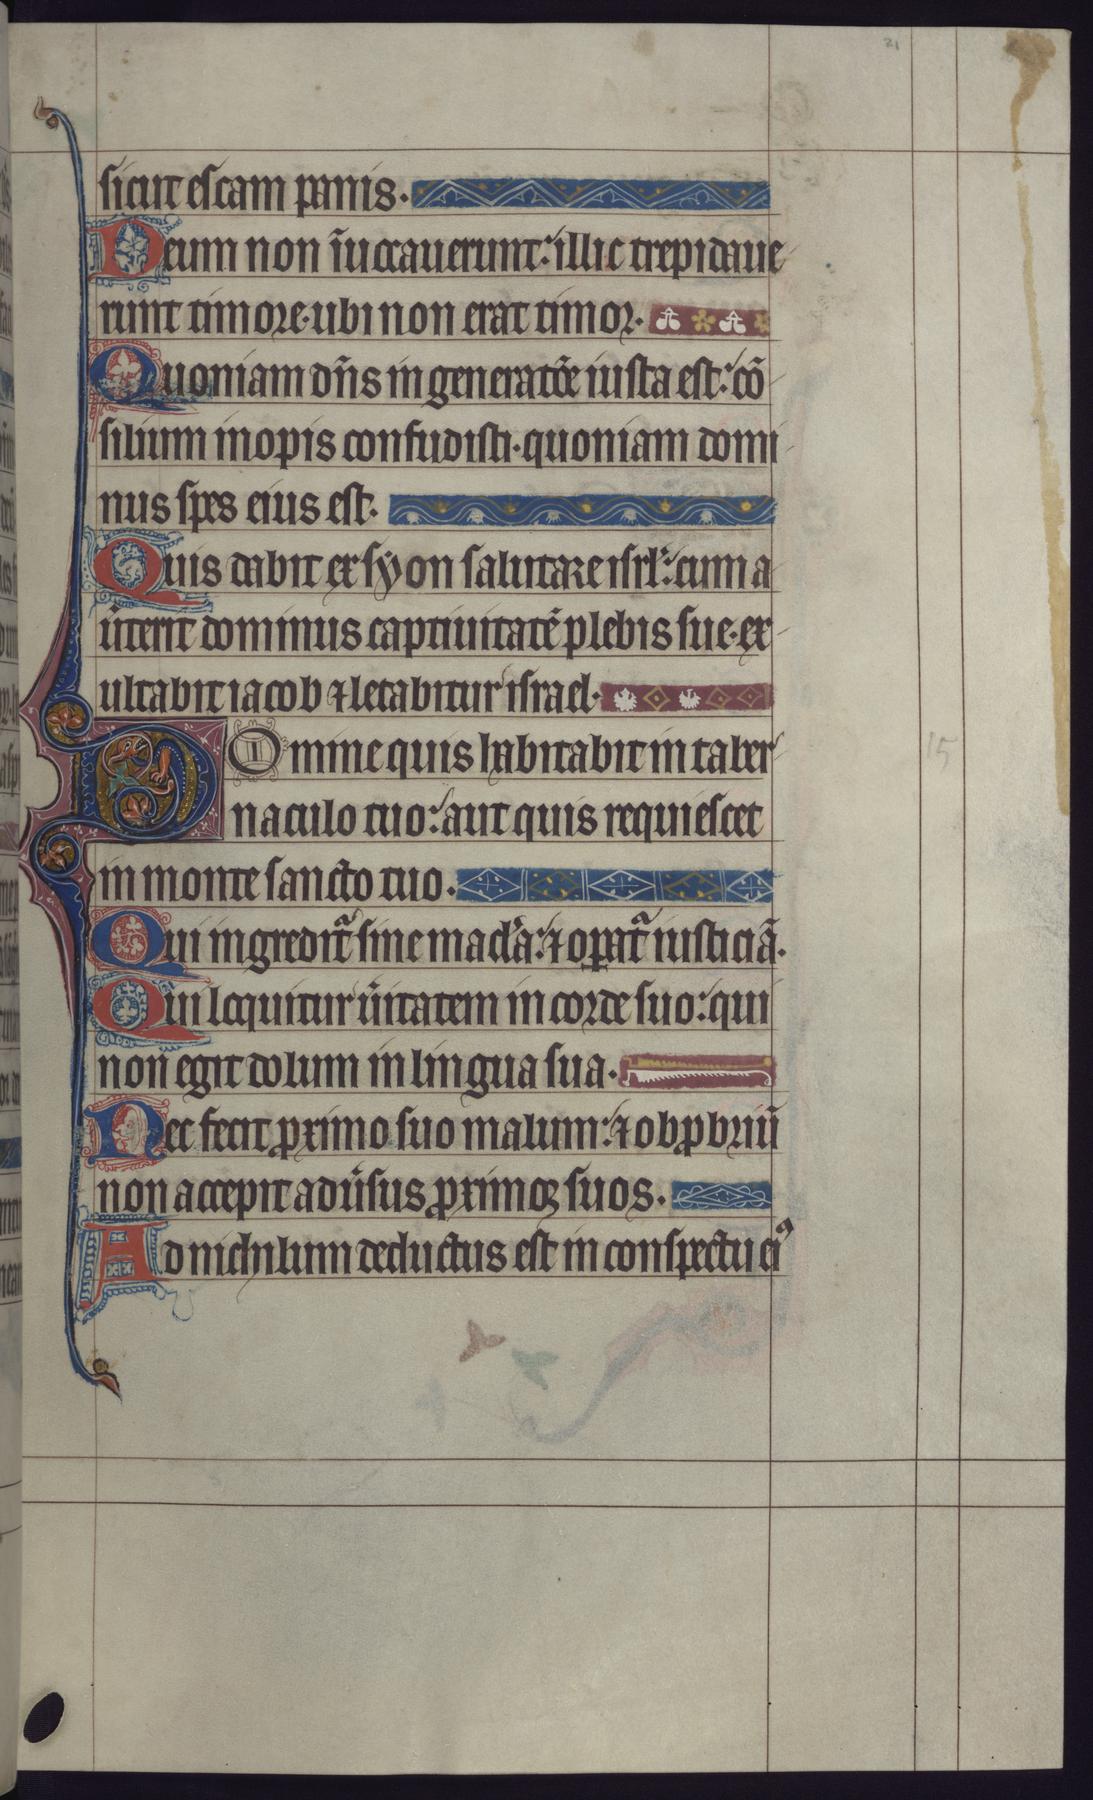 21
sicut escam panis.
Deum non īuocauerunt: illic trepidaue
runt timore. ubi non erat timor.
Quoniam dn̄s in generatōe iusta est: cō
silium inopis confudisti. quoniam domi
nus spes eius est.
Quis dabit ex syon salutare isrl̄: cum a
u̾terit dominus captiuitatē plebis sue. ex
ultabit iacob ⁊ letabitur israel.
Domine quis habitabit in taber
naculo tuo: aut quis requiescet
in monte sancto tuo.
15
Qui ingreditᷓ sine macl̾a: ⁊ oꝑatᷓ iusticiā.
Qui loquitur u̾itatem in corde suo: qui
non egit dolum in lingua sua.
Nec fecit ꝓximo suo malum: ⁊ obꝓbriū
non accepit adu̾sus ꝓximoꝫ suos.
Ad nichilum deductus est in conspectu eiꝰ